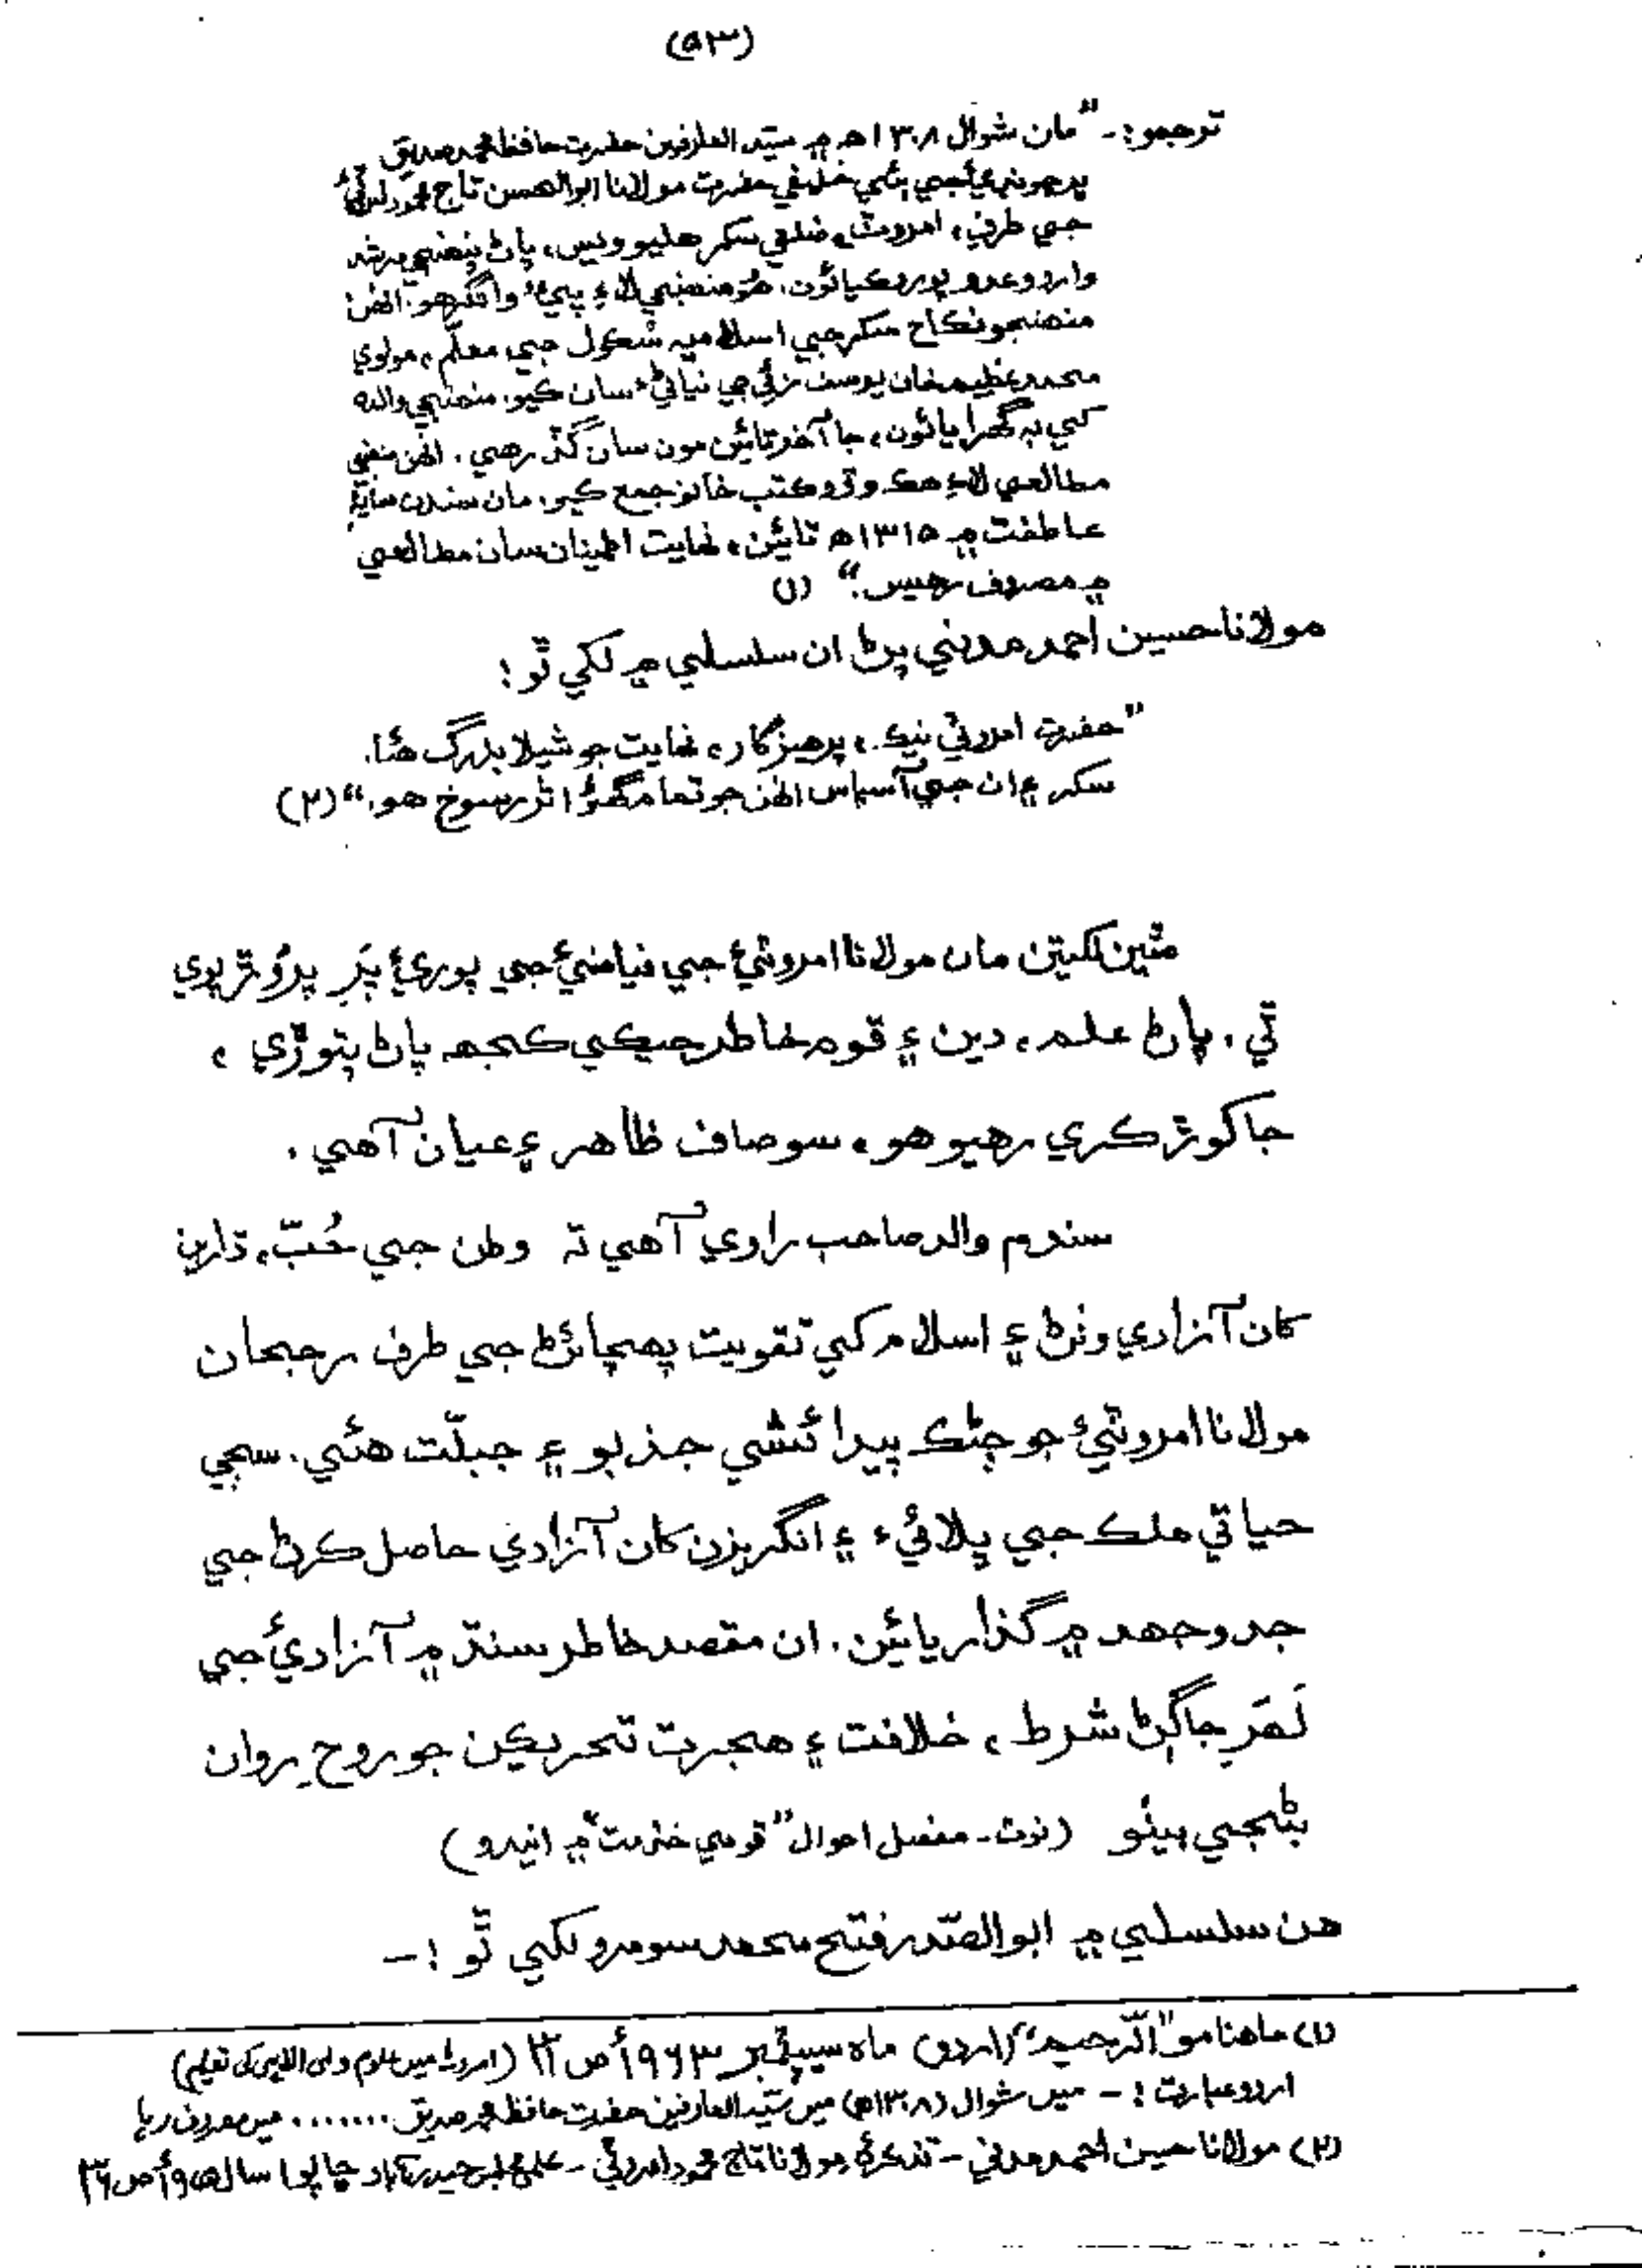 (۵۳)
ترجمو:۔ "مان شوال ۱۳۰۸ھ ۾ سيّد العارفين حضرت حافظ محمد صديق
ڀرچونڊيءَ جي ٻئي خليفي حضرت مولانا ابوالحسن تاج محمود امروٽيءَ
جي طرف، امروٽ، ضلعي سکر هليو ويس، پاڻ پنهنجي مرشد
وارو وعدو پورو ڪيائون. هو منهنجي لاءِ پيءُ وانگر هو. انهن
منهنجو نڪاح سکر جي اسلاميه سڪول جي معلّم، مولوي
محمد عظيم خان يوسف زئي جي نياڻيءَ سان ڪيو. منهنجي والده
کي به گهرايائون، جا آخر تائين مون سان گڏ رهي. انهن منهنجي
مطالعي لاءِ هڪ وڏو ڪتب خانو جمع ڪيو. مان سندن سايۂ
عاطفت ۾ ۱۳۱۵ھ تائين، نهايت اطمينان سان مطالعي
۾ مصروف رهيس." (۱)
مولانا حسين احمد مدني پڻ ان سلسلي ۾ لکي ٿو:
"حضرت امروٽي نيڪ، پرهيزگار، نهايت جوشيلا بزرگ هئا.
سکر ۽ ان جي آسپاس انهن جو تمام گهڻو اثر رسوخ هو." (۲)
مٿين لکڻين مان مولانا امروٽيءَ جي فياضيءَ جي پوريءَ پَرِ پرُوڙ پوي
ٿي. پاڻ علم، دين ۽ قوم خاطر جيڪي ڪجھ پاڻ پتوڙي،
جاکوڙ ڪري رهيو هو، سو صاف ظاهر ۽ عيان آهي.
سندم والد صاحب راوي آهي ته وطن جي حُبّ، ڌارين
کان آزادي وٺڻ ۽ اسلام کي تقويت پهچائڻ جي طرف رجحان
مولانا امروٽيءَ جو ڄڻڪ پيدائشي جذبو ۽ جبلّت هئي. سڄي
حياتي ملڪ جي ڀلائيءَ ۽ انگريزن کان آزادي حاصل ڪرڻ جي
جدوجهد ۾ گذاريائين. ان مقصد خاطر سنڌ ۾ آزاديءَ جي
لَهَر جاڳڻ شرط، خلافت ۽ هجرت تحريڪن جو روحِ روان
بڻجي پيئو (نوٽ۔ مفصل احوال "قومي خدمت" ۾ ايندو)
هن سلسلي ۾ ابوالصّدر فتح محمد سومرو لکي ٿو:۔
(۱) ماهنامو "الرّحيم" (اردو) ماه سيپٽمبر ۱۹۶۳ع ص (امروٹ میں علوم ولی اللہی کی تعلیم)
اردو عبارت:۔ میں شوال (۱۳۰۸ھ) میں سیّد العارفین حضرت حافظ محمد صدیق ....... میں مصروف رہا
(۲) مولانا حسين احمد مدني۔ تذڪرۂ مولانا تاج محمود امروٽي۔ علمي مجلس حيدرآباد ڇاپو ۱ سال ص